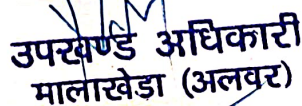 उपखण्ड अधिकारी
मालाखेडा (अलवर)